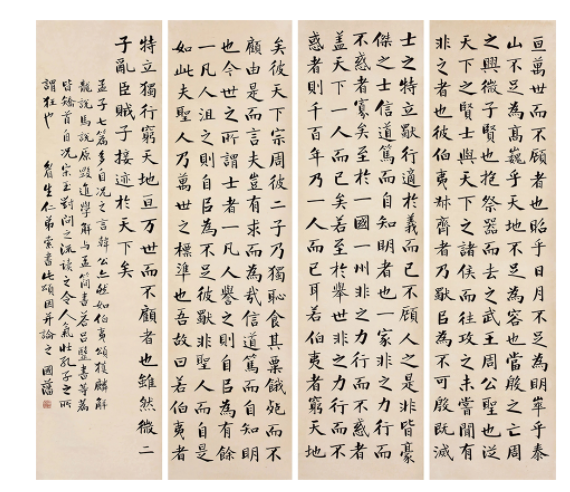 亘萬世而不顧者也昭乎日月不足為明崒乎泰
山不足為高巍乎天地不足為容也當殷之亡周
之興微子賢也抱祭器而去之武王周公聖也從
天下之賢士與天下之諸侯而往攻之未嘗聞有
非之者也彼伯夷叔齊者乃獨㠯為不可殷既滅
士之特立獨行適於義而已不顧人之是非皆豪
傑之士信道篤而自知明者也一家非之力行而
不惑者寡矣至於一國一州非之力行而不惑者
蓋天下一人而已矣若至於舉世非之力行而不
惑者則千百年乃一人而已耳若伯夷者窮天地
矣彼天下宗周彼二子乃獨恥食其粟餓死而不
顧由是而言夫豈有求而為哉信道篤而自知明
也今世之所謂士者一凡人譽之則自㠯為有餘
一凡人沮之則自㠯為不足彼獨非聖人而自是
如此夫聖人乃萬世之標準也吾故曰若伯夷者
特立獨行窮天地亘万世而不顧者也雖然微二
子亂臣賊子接迹於天下矣
孟子七篇多自況之言韓公亦然如伯夷頌獲麟解
龍說馬說原毀進學解与孟簡書答呂毉書等篇
皆矯首自況宋玉對問之流讀之令人氣壯孔子之所
謂狂也 睂生仁弟索書此頌因并論之 國藩